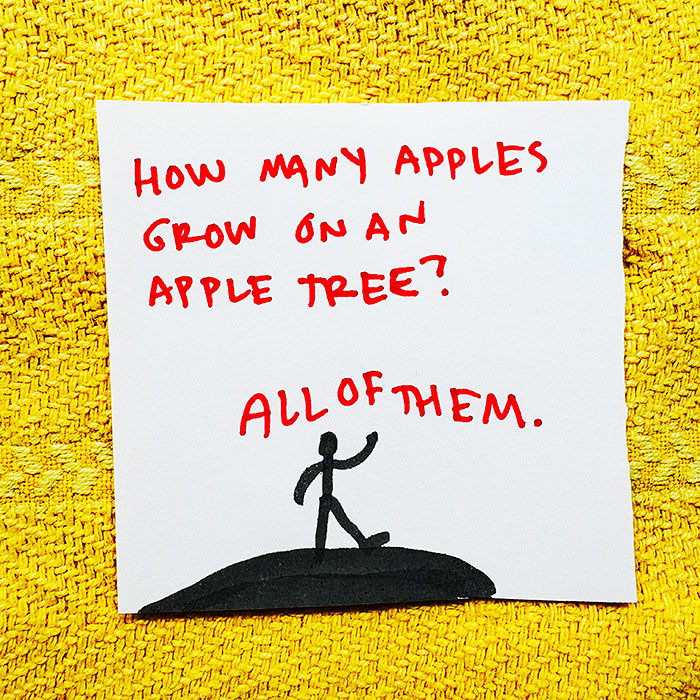 HOW MANY APPLES
GROW ON AN
APPLE TREE?
ALL OF THEM.